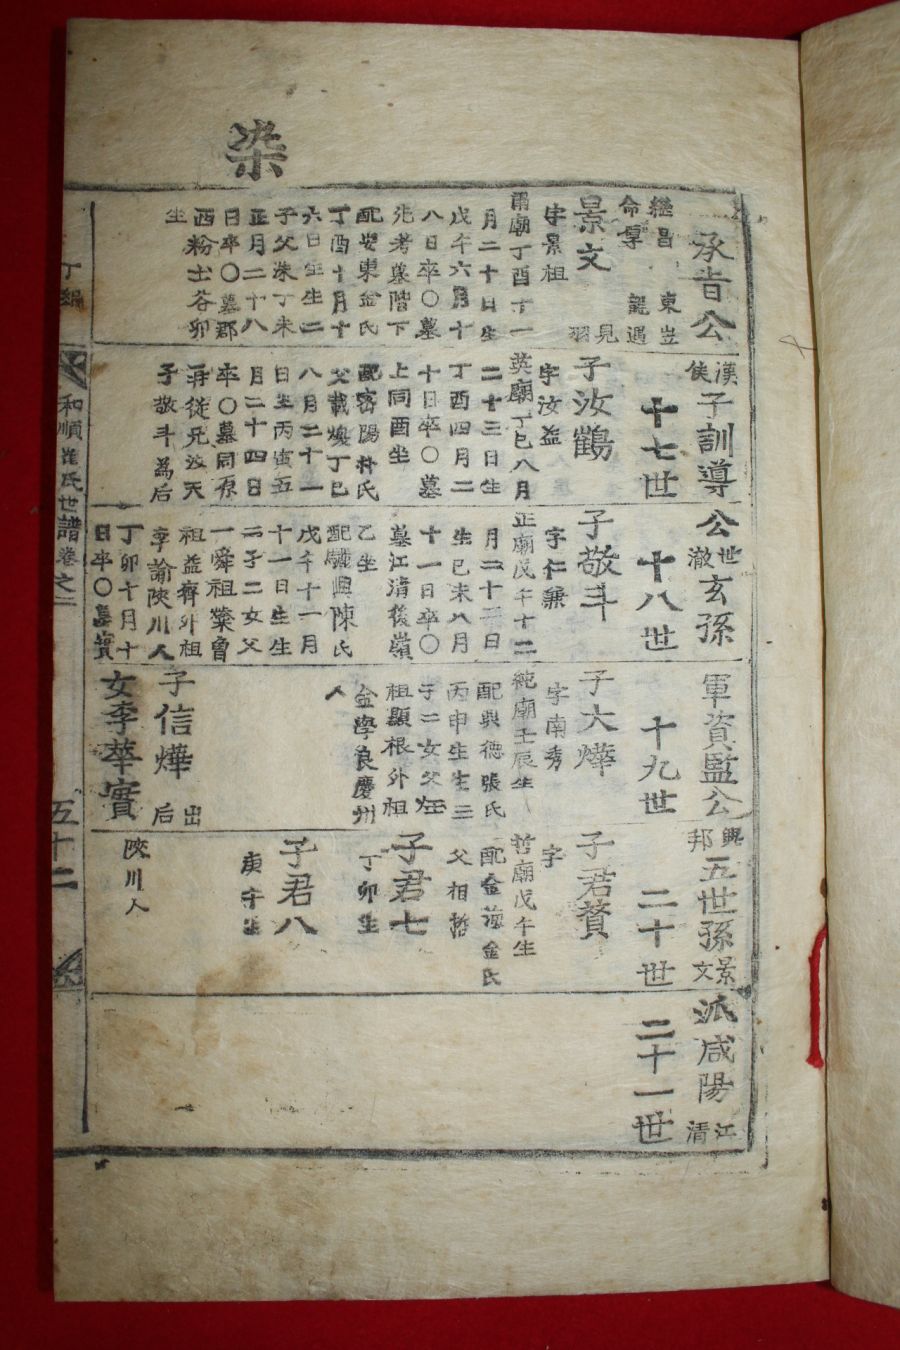 染
承旨公漢俠子訓導公世澈玄孫軍資監公興邦五世孫景文派咸陽江清
繼昌 東岦
命厚 龍遇
十七世
十八世
十九世
二十世
二十一世
景文 見羽
字景祖
肅廟丁酉丁一
月二十日生
戊午六月十
八日卒〇墓
先考墓階下
配安東金氏
丁酉十月十
六日生生二
子父洙丁未
正月二十八
日卒〇墓郡
西粉土谷卯
坐
子汝鶴
字汝益
英廟丁巳八月
二十三日生
丁酉四月二
十日卒〇墓
上同酉坐
配密陽朴氏
父載煥丁巳
八月二十一
日生丙寅五
月二十四日
卒〇墓同原
再從兄汝天
子敬斗為后
子敬斗
字仁兼
正廟戊午十二
月二十二日
生己未八月
十一日卒〇
墓江清後嶺
乙坐
配驪興陳氏
戊午十一月
十一日生生
二子二女父
一舜祖業曾
祖益齊外祖
李諭陜川人
丁卯十月十
日卒〇墓實
子大燁
字南秀
純廟壬辰生
配興德張氏
丙申生生三
子二女父任
祖顯根外祖
金學良慶州
人
子信燁 出后
女李華實
子君贊
字
哲廟戊午生
配金海金氏
父相哲
子君七
丁卯生
子君八
庚午生
陜川人
丁編
和順崔氏世譜卷之二
五十二